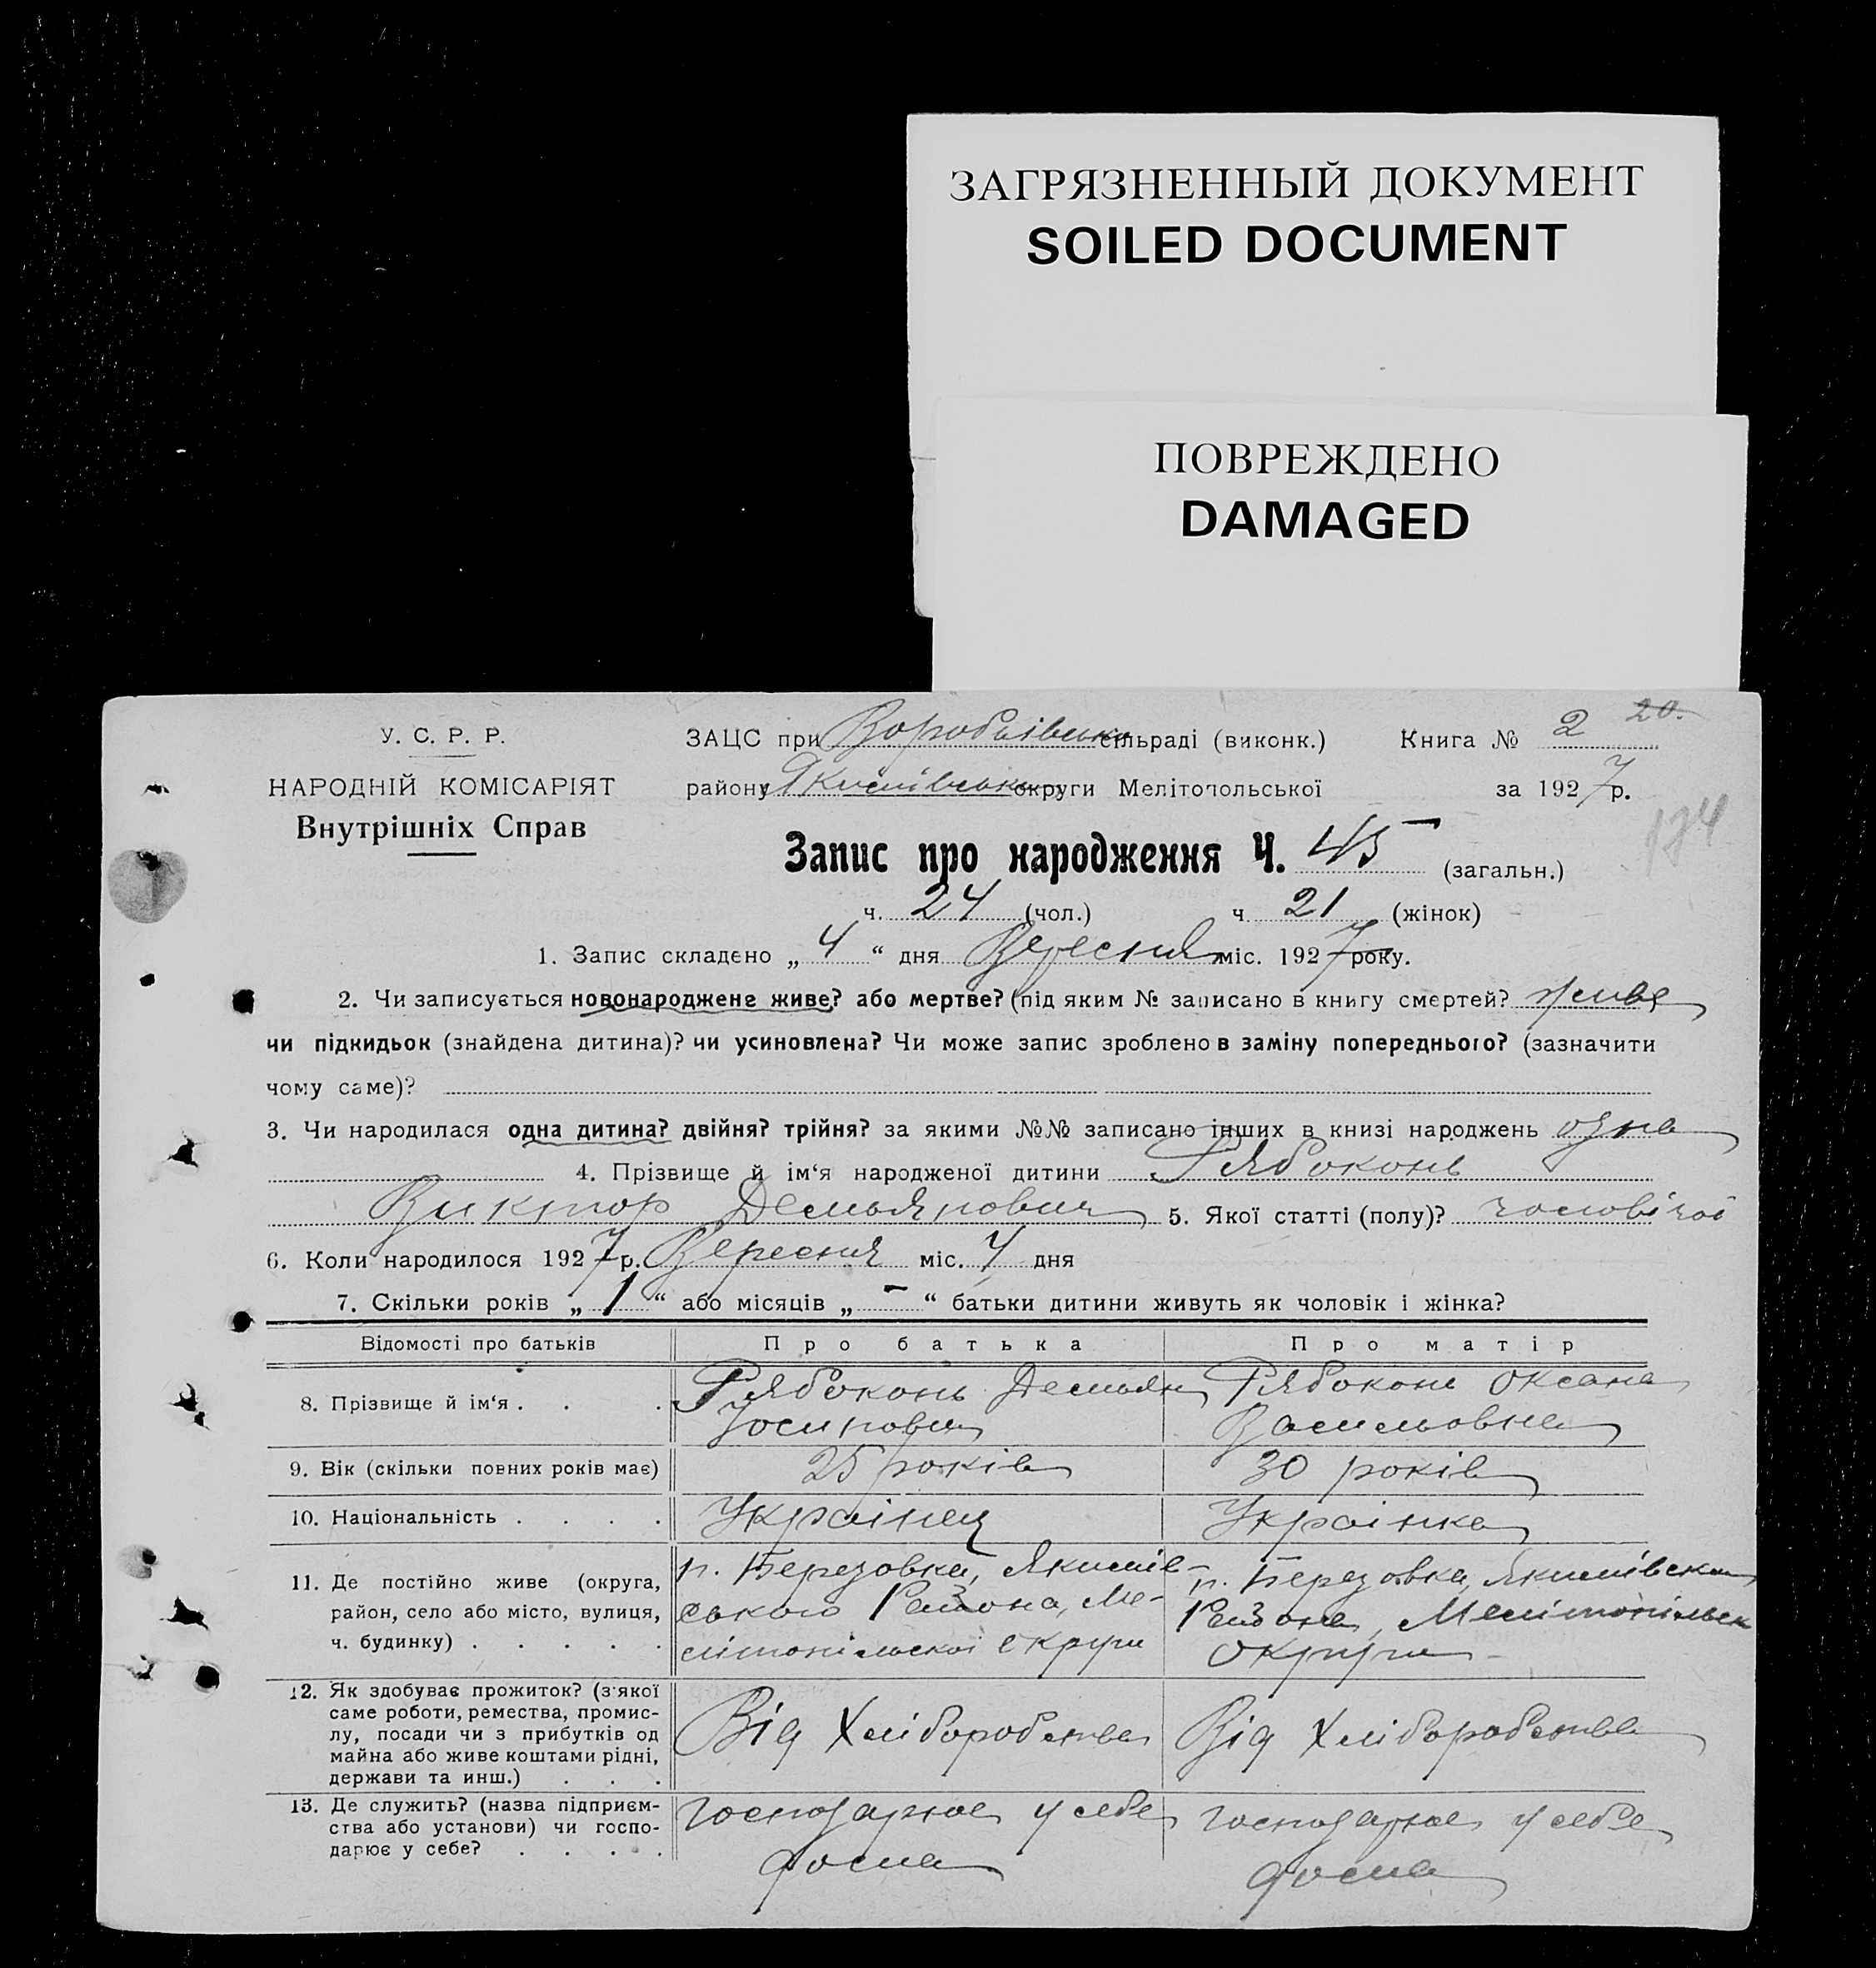 ЗАГРЯЗНЕННЫЙ ДОКУМЕНТ
SOILED DOCUMENT
ПОВРЕЖДЕНО
DAMAGED
У. С. Р. Р.
НАРОДНІЙ КОМІСАРІЯТ
Внутрішніх Справ
ЗАЦС при сільраді (виконк.) Книга № 2 20.
району округи Мелітопольської за 1927 р.
174
Запис про народження Ч. 45 (загальн.)
ч. 24 (чол.) ч 21 (жінок)
1. Запис складено „ 4 “ дня Вересня міс. 1927 року.
2. Чи записується новонароджене живе? або мертве? (під яким № записано в книгу смертей? живе
чи підкидьок (знайдена дитина)? чи усиновлена? Чи може запис зроблено в заміну попереднього? (зазначити
чому саме)?
3. Чи народилася одна дитина? двійня? трійня? за якими №№ записано інших в книзі народжень одна
4. Прізвище й ім‘я народженої дитини Рябоконь
Виктор Демьянович 5. Якої статті (полу)? чоловічої
6. Коли народилося 1927 р. Вересня міс. 4 дня
7. Скільки років „ 1 “ або місяців „ - “ батьки дитини живуть як чоловік і жінка?
Відомості про батьків Про батька Про матір
8. Прізвище й ім‘я . . . Рябоконь Демьян Рябоконь Оксана
Йосипович
9. Вік (скільки повних років має) 25 років 30 років
10. Національність . . . . Українец Українка
11. Де постійно живе (округа, район, село або місто, вулиця, ч. будинку) . . . . .
п. Березовка, Якимів-
ського Района, Ме-
літопільскої округи
п. Березовка, Якимівскаг
Района, Мелітопільск
округи
12. Як здобуває прожиток? (з якої
саме роботи, ремества, промис-
лу, посади чи з прибутків од
майна або живе коштами рідні,
держави та инш.) . . .
Від Хліборобства Від Хліборобства
13. Де служить? (назва підприєм-
ства або установи) чи госпо-
дарює у себе? . . . .
господарює у себе господарює у себе
дома дома